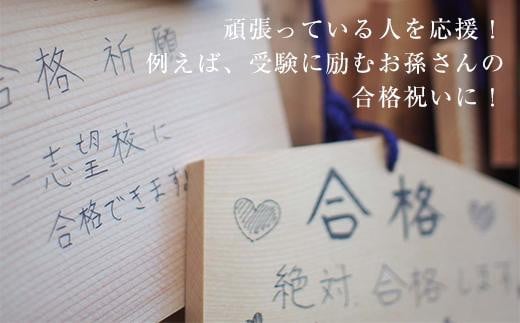 頑張っている人を応援！
例えば、受験に励むお孫さんの
合格祝いに！
合格祈願
一志望校に
合格できますよ
合格
絶対、合格します